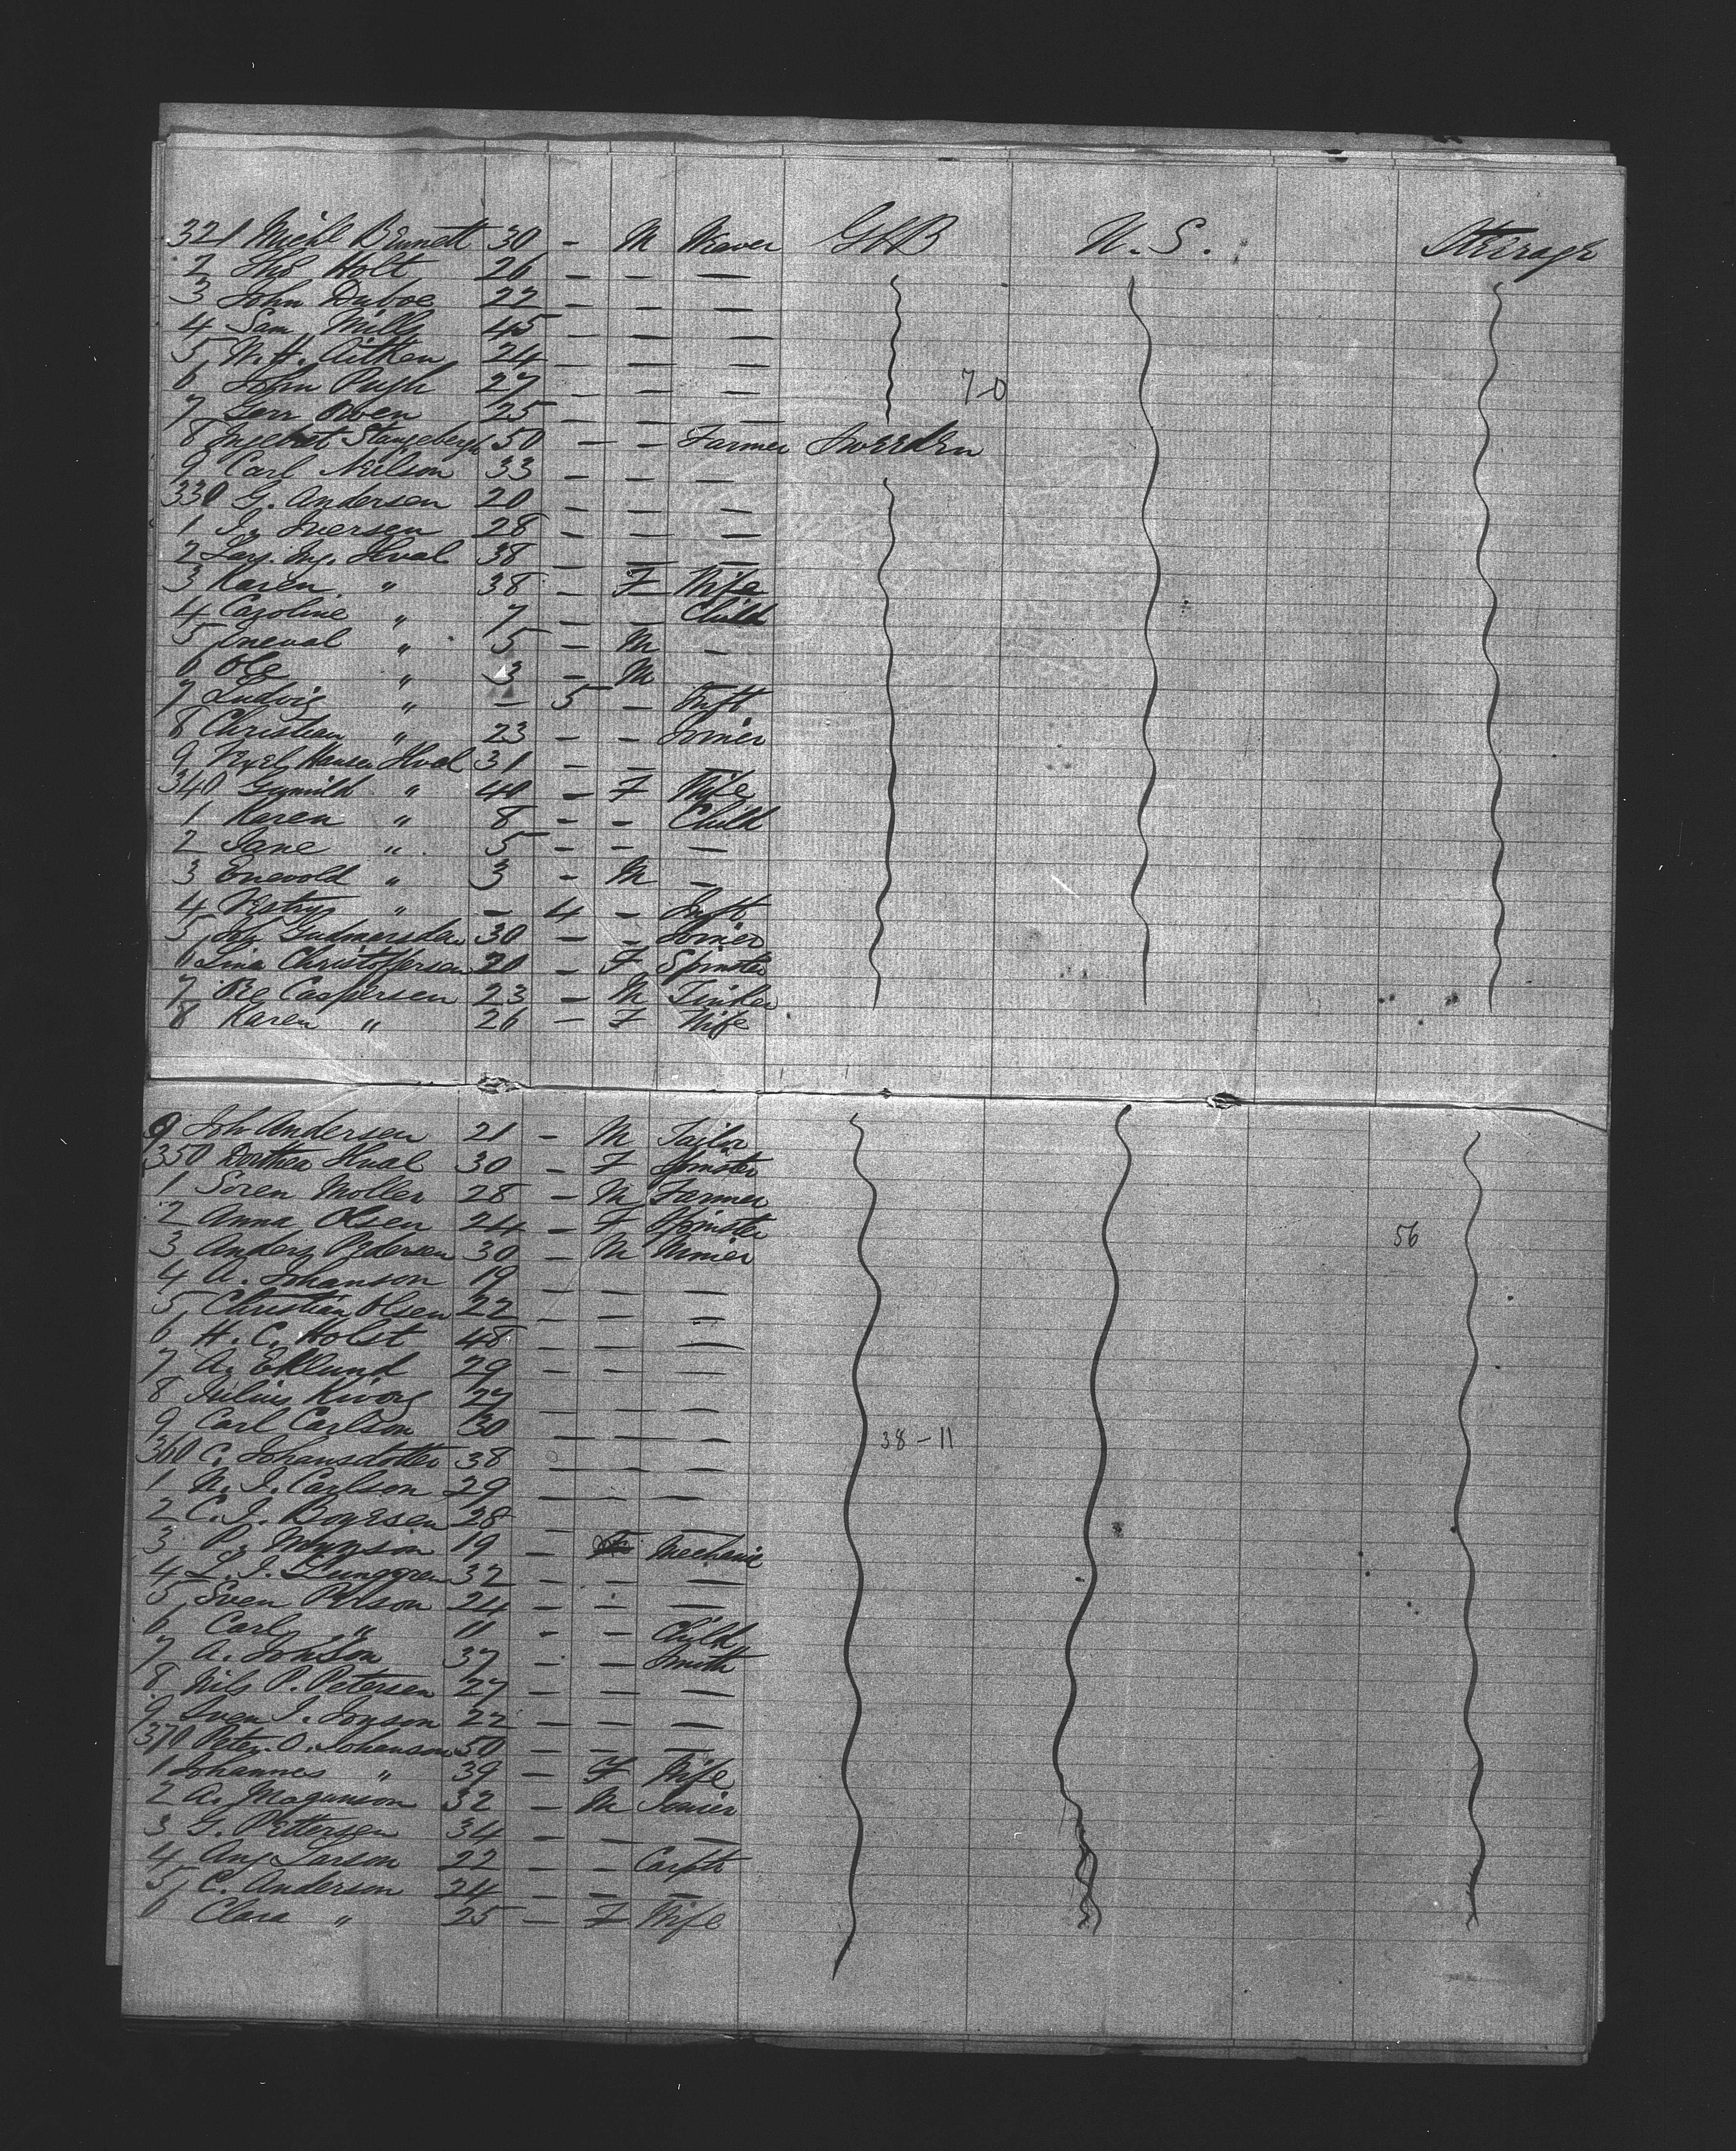 321 Michl Bennett 30 - M Weaver GtB U.S. Steerage
2 Thos Holt 26 - - -
3 John Duboe 22 - - -
4 Sam Mills 45 - - -
5 W.H. Aitken 24 - - -
6 John Pugh 27 - - - 7-0
7 Owen 25 - - -
8 Stangebergh 50 - - Farmer Sweeden
9 Carl Neilson 33 - - -
330 G. Andersen 20 - - -
1 J. Iversen 28 - - -
2 Hval 38 - - -
3 Karen " 38 - F Wife
4 Caroline " 7 - - Child
5 Eneval " 5 - M -
6 Ole " 3 - M
7 Ludvig " - 5 - Inft
8 Christian " 23 - - Joiner
9 Hansen Hval 31 - - -
340 Gunild " 40 - F Wife
1 Karen " 8 - - Child
2 Jane " 5 - - -
3 Enevold " 3 - M -
4 " - 4 - Inft
5 Gudmersden 30 - - Joiner
6 Lina Christoffersen 20 - F Spinster
7 Ole Caspersen 23 - M Tinker
8 Karen " 26 - F Wife
9 Joh Andersen 21 - M Tailor
350 Dorthea Hval 30 - F Spinster
1 Soren Moller 28 - M Farmer
2 Anna Olsen 24 - F Spinster
3 Anders Pedersen 30 - M 56
4 A. Johanson 19 - - -
5 Christian Olsen 22 - - -
6 H. C. Holst 48 - - -
7 A. Eklund 29 - - -
8 Julius 27 - - -
9 Carl Carlson 30 - - - 38-11
360 C. Johansdotter 38 - - -
1 N. J. Carlson 29 - - -
2 C. J. Boyesen 28 - - -
3 P. 19 - Mechanic
4 L. J. Lunggren 32 - - -
5 Sven Polson 24 - - -
6 Carl " 11 - - Child
7 A. Jonson 37 - - Smith
8 Nils P. Petersen 27 - - -
9 Sven J. Jonson 22 - - -
370 Peter O. Johanson 50 - - -
1 Johannes " 39 - F Wife
2 A. Magunson 32 - M Joiner
3 G. Pettersen 34 - - -
4 Aug Larson 22 - - Carptr
5 C. Anderson 24 - - -
6 Clara " 25 - F Wife